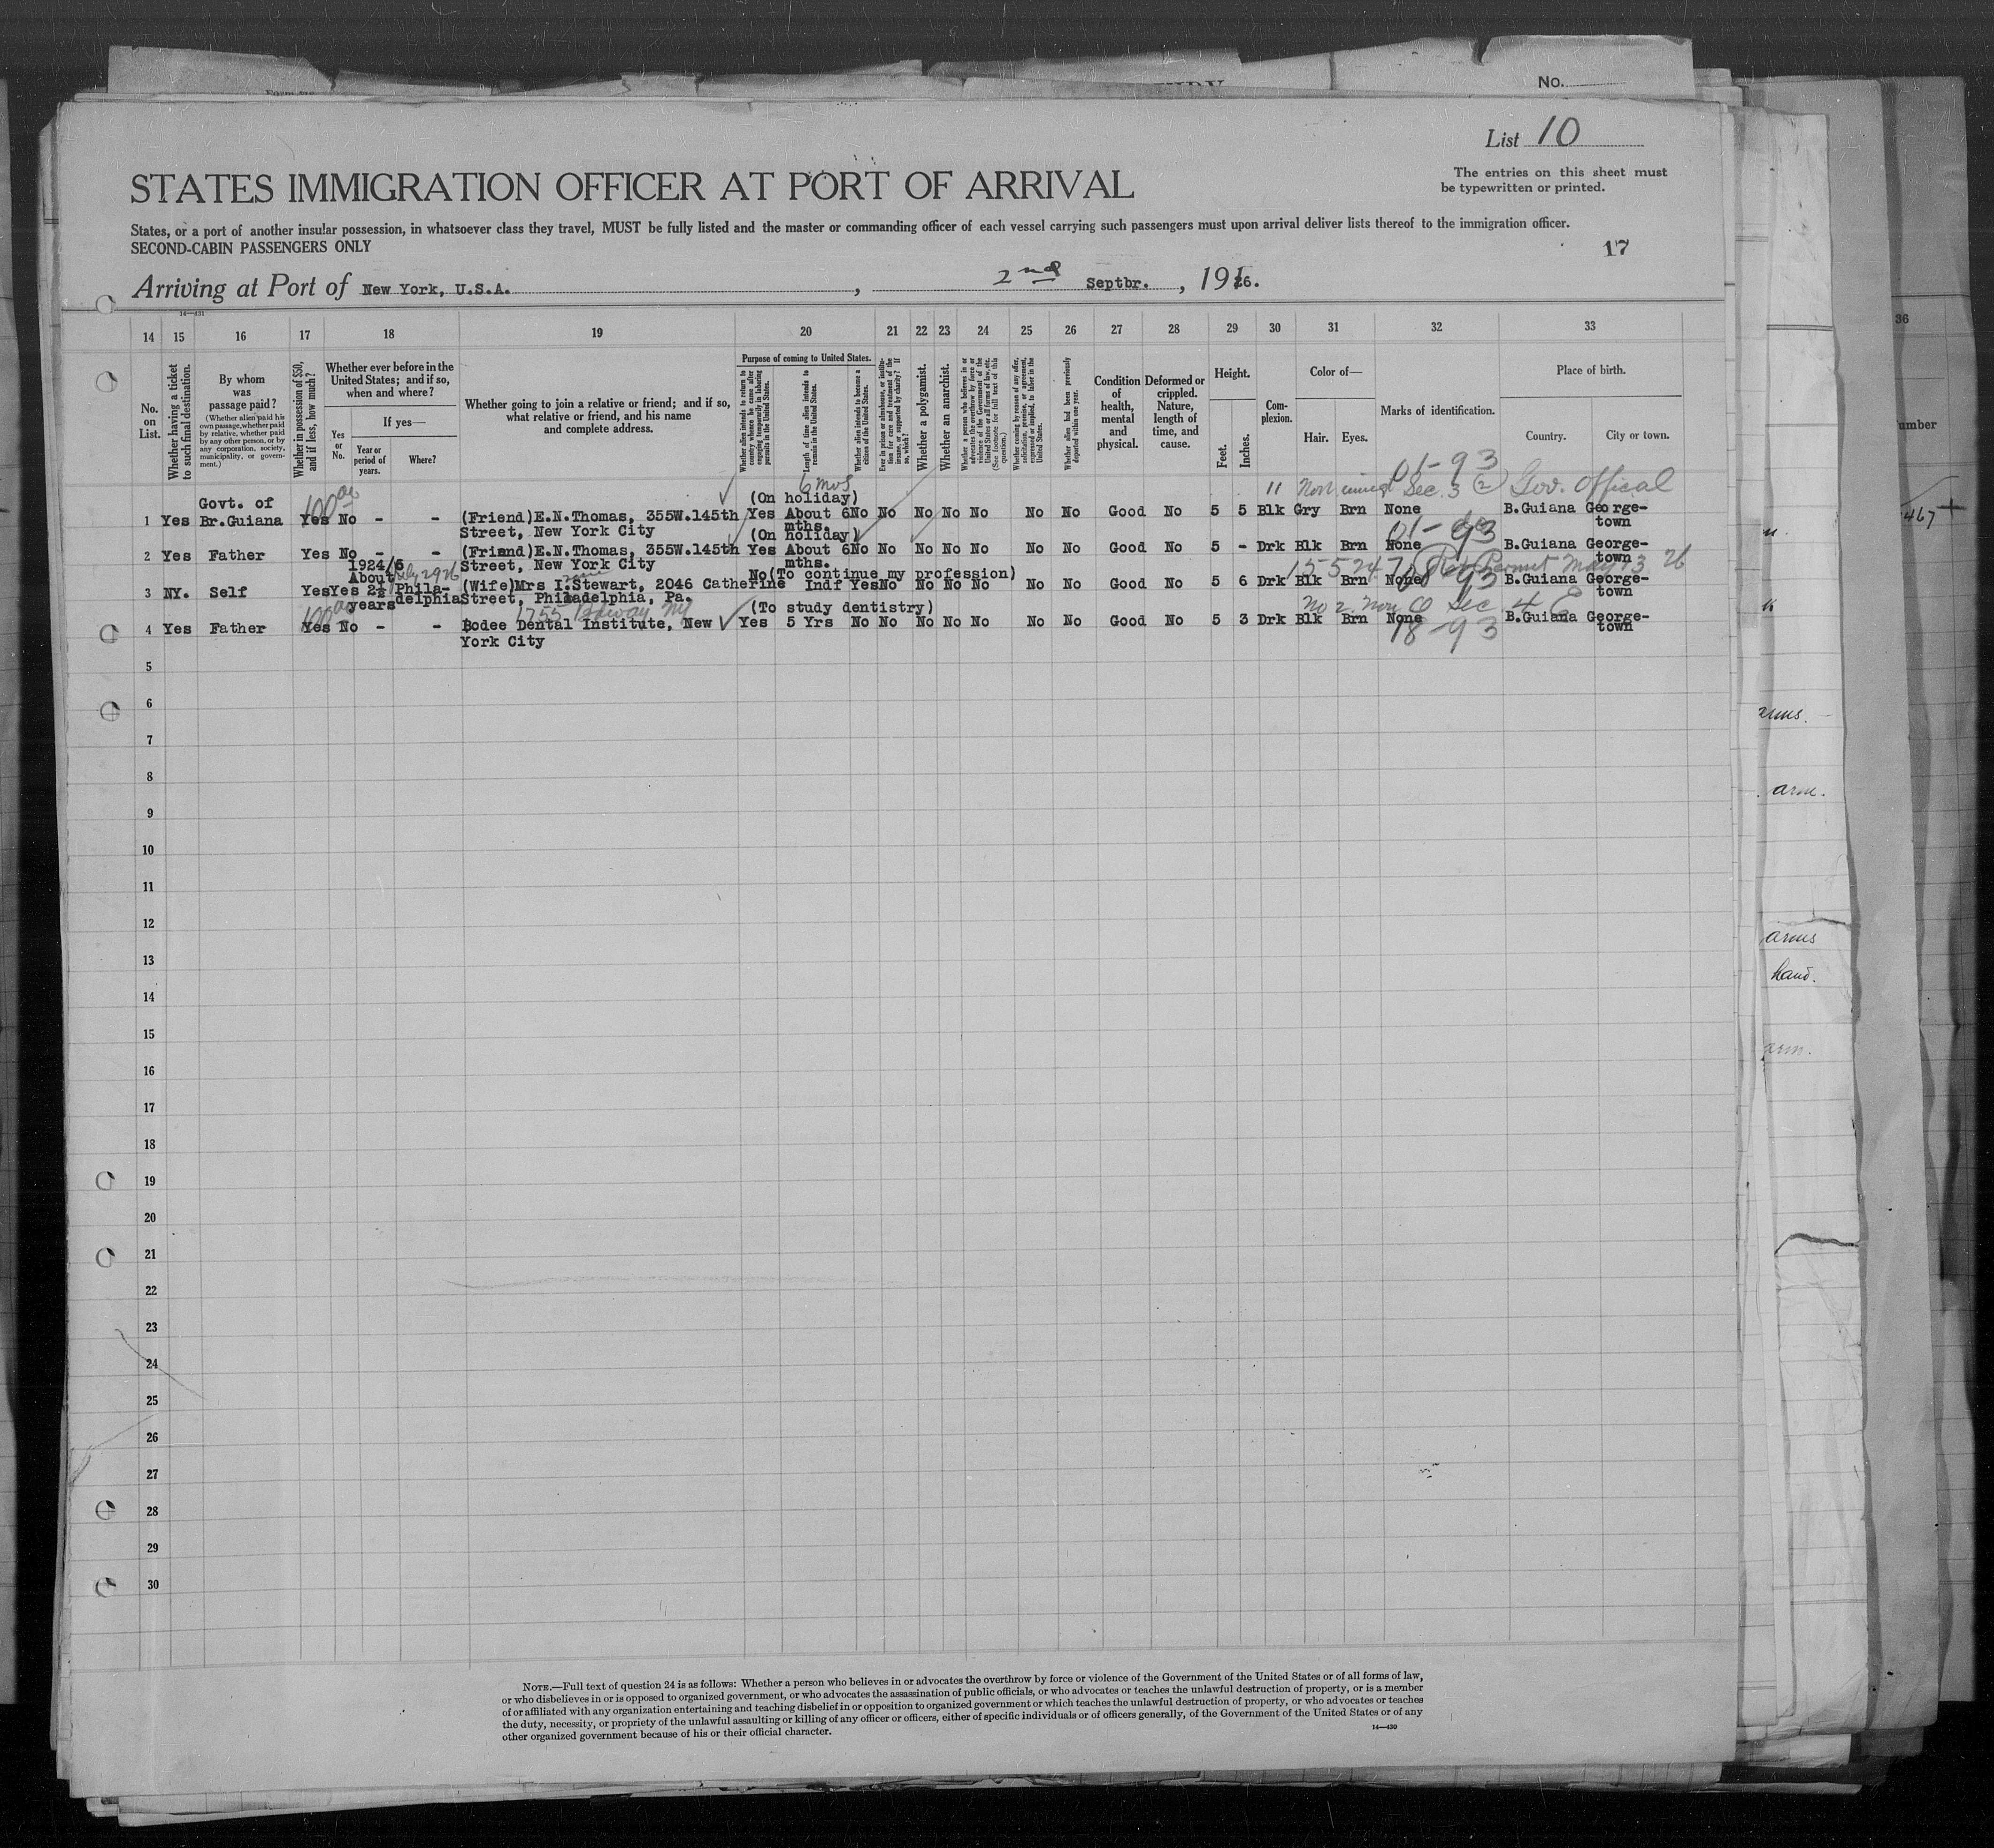 No.
List 10
The entries on this sheet must
be typewritten or printed.
STATES IMMIGRATION OFFICER AT PORT OF ARRIVAL
States, or a port of another insular possession, in whatsoever class they travel, MUST be fully listed and the master or commanding officer of each vessel carrying such passengers must upon arrival deliver lists thereof to the immigration officer.
SECOND-CABIN PASSENGERS ONLY
17
Arriving at Port of New York, U.S.A., 2nd Septbr., 1926.
14—431
14 15 16 17 18 19 20 21 22 23 24 25 26 27 28 29 30 31 32 33
No. on List.
Whether having a ticket to such final destination.
By whom was passage paid?
(Whether alien paid his own passage, whether paid by relative, whether paid by any other person, or by any corporation, society, municipality, or government.)
Whether in possession of $50, and if less, how much?
Whether ever before in the United States; and if so, when and where?
Yes or No.
If yes—
Year or period of years.
Where?
Whether going to join a relative or friend; and if so, what relative or friend, and his name and complete address.
Purpose of coming to United States.
Whether alien intends to return to country whence he came after engaging temporarily in laboring pursuits in the United States.
Length of time alien intends to remain in the United States.
Whether alien intends to become a citizen of the United States.
Ever in prison or almshouse, or institution for care and treatment of the insane, or supported by charity? If so, which?
Whether a polygamist.
Whether an anarchist.
Whether a person who believes in or advocates the overthrow by force or violence of the Government of the United States or all forms of law, etc. (See footnote for full text of this question.)
Whether coming by reason of any offer, solicitation, promise, or agreement, expressed or implied, to labor in the United States.
Whether alien had been previously deported within one year.
Condition of health, mental and physical.
Deformed or crippled. Nature, length of time, and cause.
Height.
Feet. Inches.
Complexion.
Color of—
Hair. Eyes.
Marks of identification.
Place of birth.
Country. City or town.
01-93
6 mos
11 Non immigt Sec. 3 (2) Gov. Offical
Govt. of 100.00 (On holiday)
1 Yes Br.Guiana Yes No - - (Friend)E.N.Thomas, 355W.145th Yes About 6 No No No No No No No Good No 5 5 Blk Gry Brn None B.Guiana George-
Street, New York City mths. town
(On holiday) 01-93
2 Yes Father Yes No - - (Friend)E.N.Thomas, 355W.145th Yes About 6 No No No No No No No Good No 5 - Drk Blk Brn None B.Guiana George-
1924/6 Street, New York City mths. town
About July 2926 No(To continue my profession) Permit May 13 26
3 NY. Self Yes Yes 2½ Phila- (Wife)Mrs I.Stewart, 2046 Catherine Indf Yes No No No No No No Good No 5 6 Drk Blk Brn None B.Guiana George-
years delphia Street, Philadelphia, Pa. town
100.00 1755 Bdway NY (To study dentistry) Sec. 4 E
4 Yes Father Yes No - - Bodee Dental Institute, New Yes 5 Yrs No No No No No No No Good No 5 3 Drk Blk Brn None B.Guiana George-
York City 18-93 town
5
6
7
8
9
10
11
12
13
14
15
16
17
18
19
20
21
22
23
24
25
26
27
28
29
30
36
467
arms.
arm.
arms
hand.
arm.
NOTE.—Full text of question 24 is as follows: Whether a person who believes in or advocates the overthrow by force or violence of the Government of the United States or of all forms of law,
or who disbelieves in or is opposed to organized government, or who advocates the assassination of public officials, or who advocates or teaches the unlawful destruction of property, or is a member
of or affiliated with any organization entertaining and teaching disbelief in or opposition to organized government or which teaches the unlawful destruction of property, or who advocates or teaches
the duty, necessity, or propriety of the unlawful assaulting or killing of any officer or officers, either of specific individuals or of officers generally, of the Government of the United States or of any
other organized government because of his or their official character.
14—430